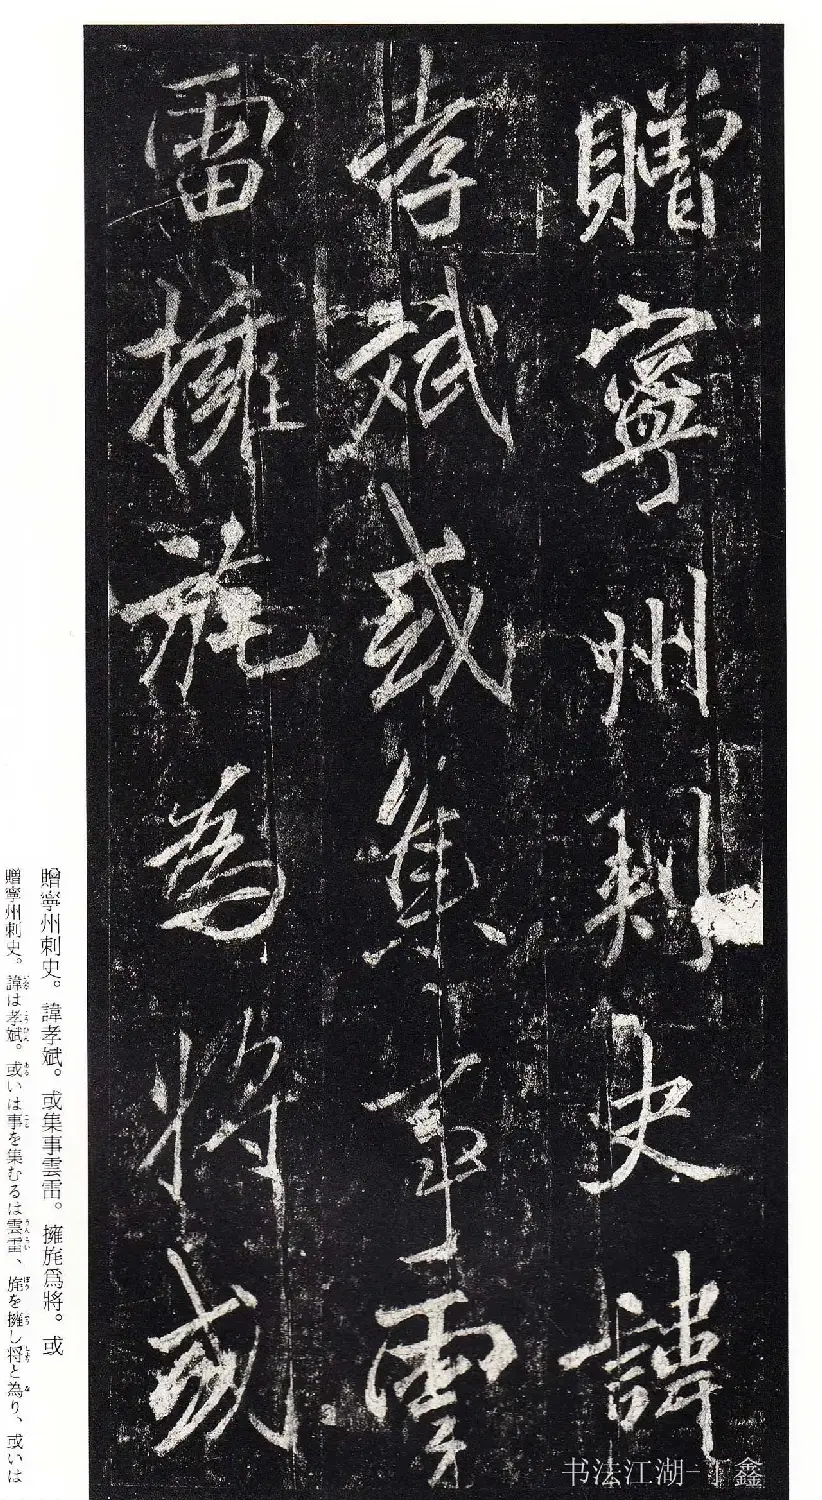 贈寧州刺史諱
孝斌或集事雲
雷擁旄為將或
贈寧州刺史。諱孝斌。或集事雲雷。擁旄爲將。或
贈寧州刺史。諱は孝斌。或いは事を集むるは雲雷、旄を擁し将と為り、或いは
书法江湖-丁鑫